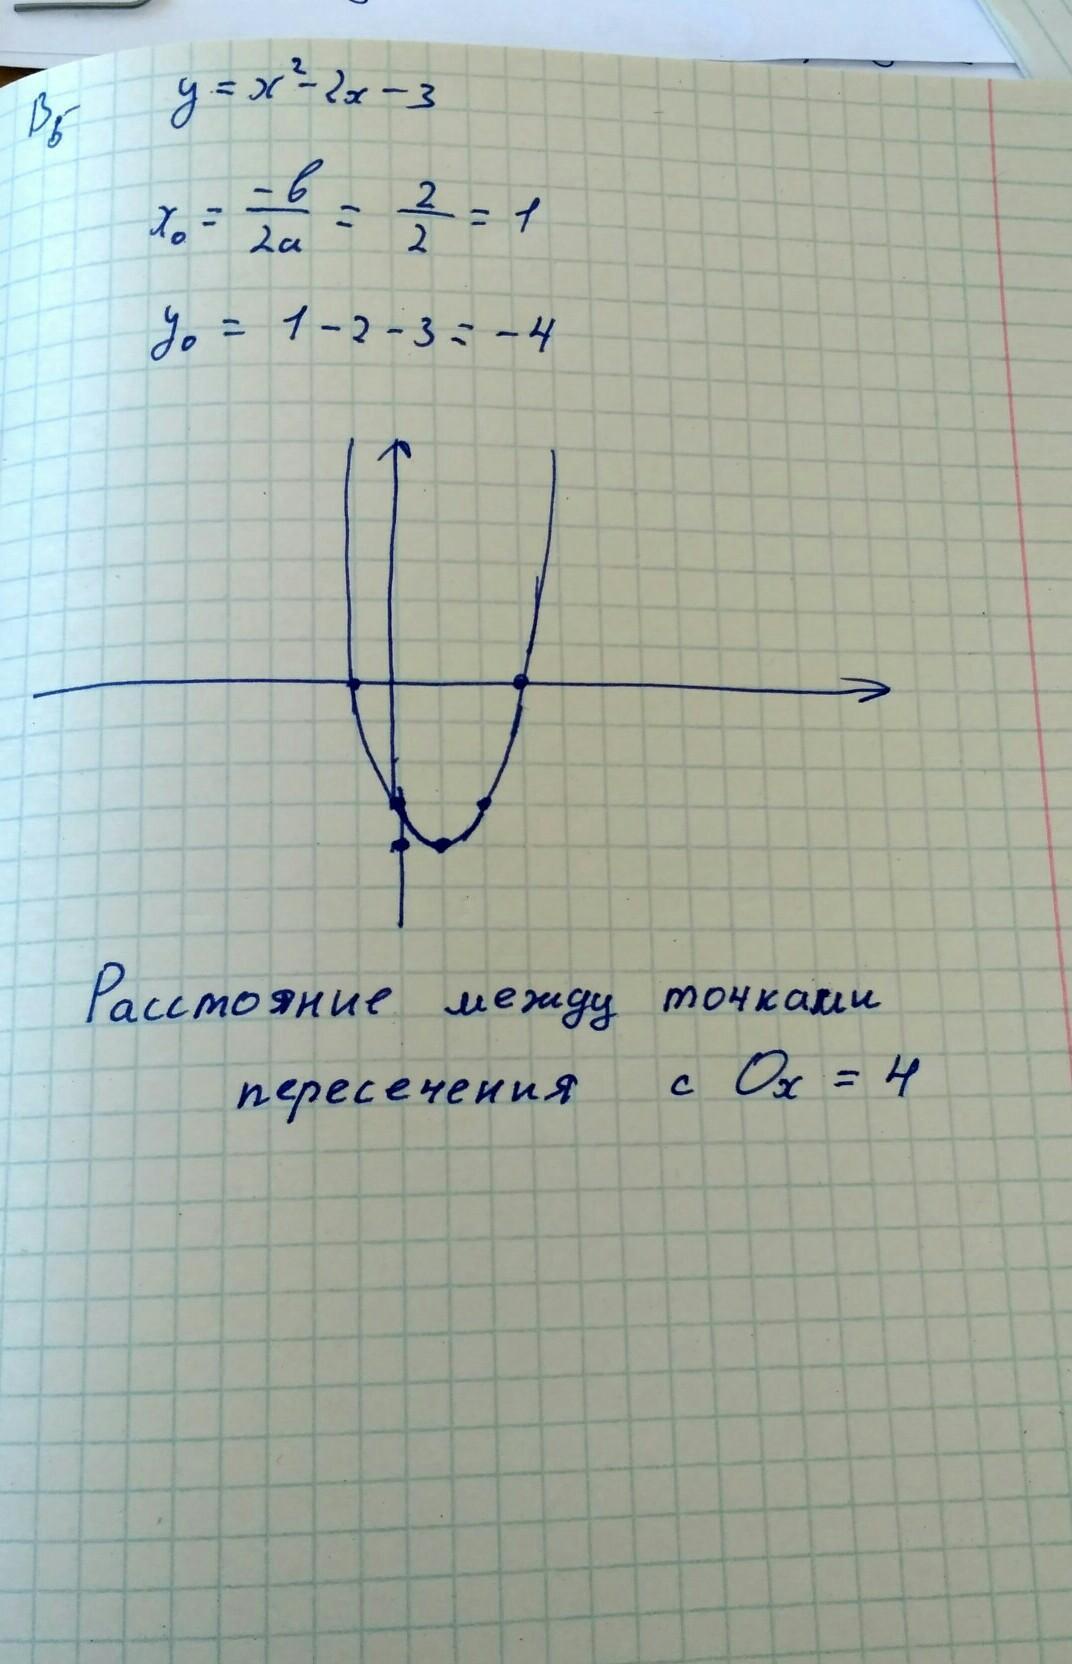 В5 y = x² - 2x - 3
x₀ = -b / 2a = 2 / 2 = 1
y₀ = 1 - 2 - 3 = -4
Расстояние между точками
пересечения с Ox = 4